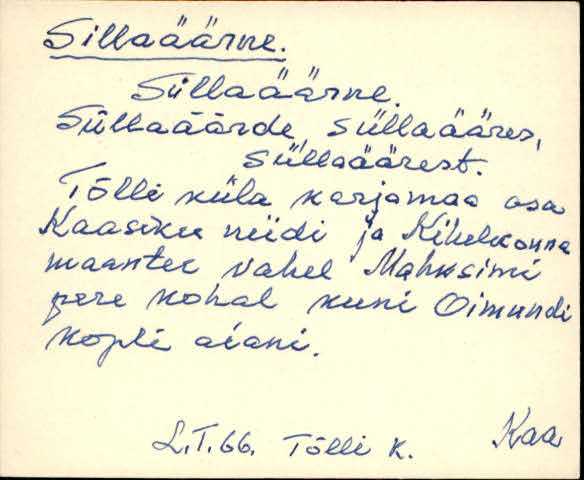 Sillaäärne.
Süllaäärne.
Süllaäärde, süllaääres,
süllaäärest.
Tõlli küla karjamaa osa
Kaasiku niidi ja Kihelkonna
maantee vahel Mahksimi
pere kohal kuni Oimundi
kopli aiani.
L.T.66. Tõlli k. Kaa